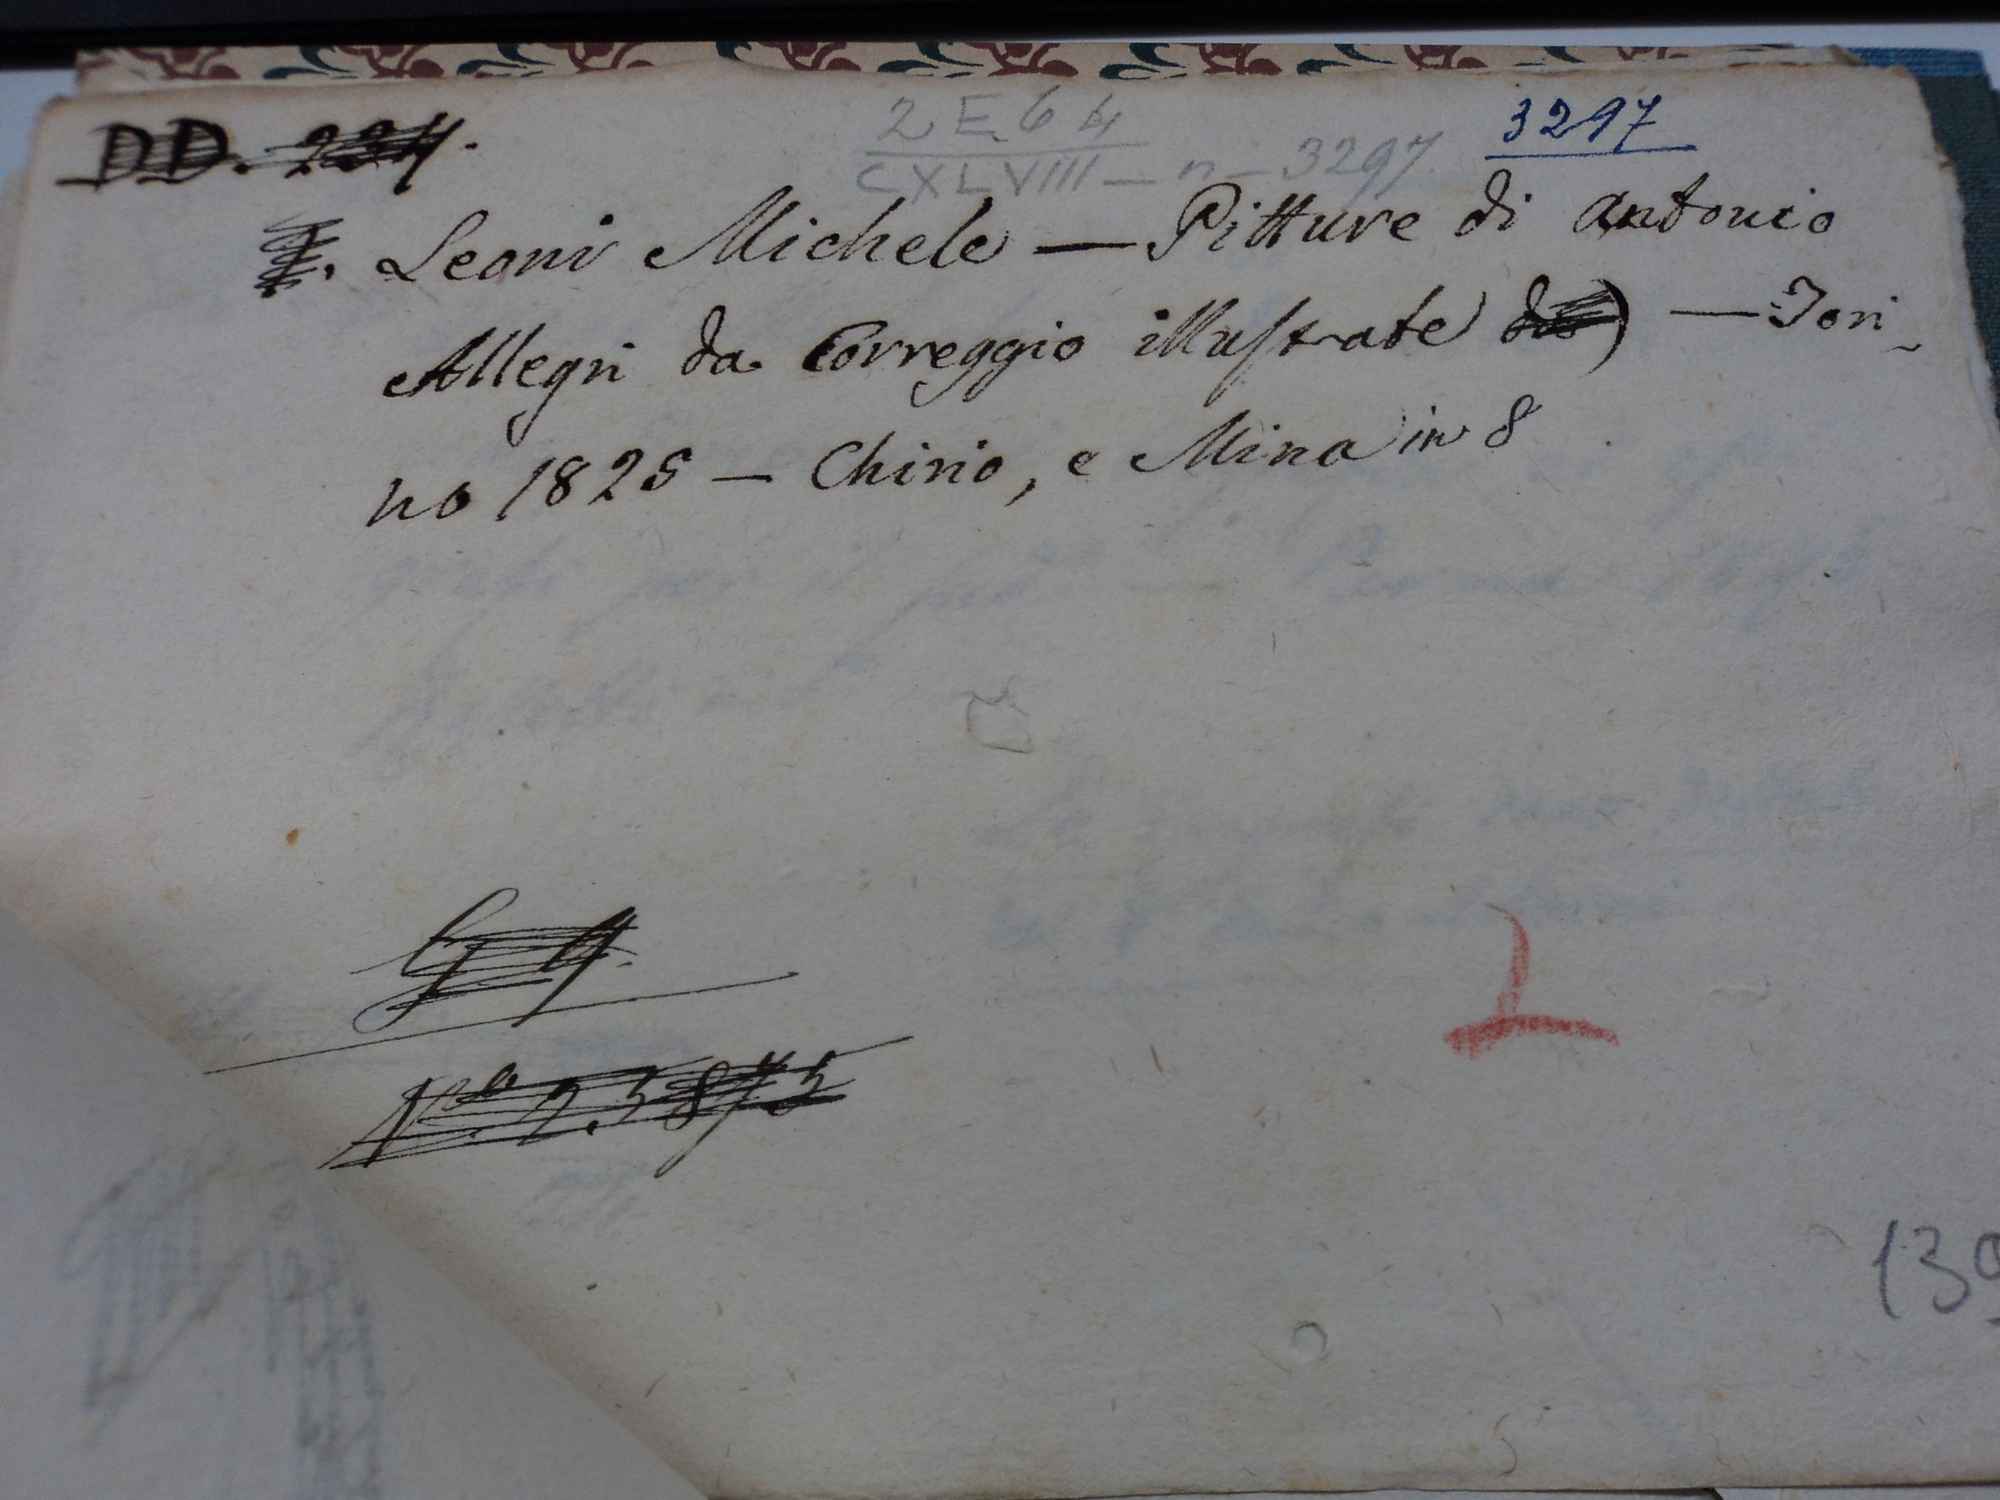 DD. 224.
2 E. 64
CXLVIII — n — 3297.
3297
Leoni Michele — Pitture di Antonio
Allegri da Correggio illustrate — Tori-
no 1825 — Chirio, e Mina in 8
No. 23873
139